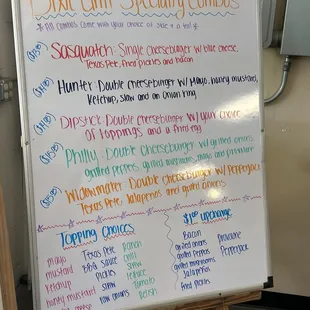 Dixie Grill Specialty Combos
* All combos come with your choice of side
Sasquatch: Single cheeseburger w/ blue cheese,
Texas Pete, fried pickles and bacon
Hunter: Double cheeseburger w/ Mayo, honey mustard,
Ketchup, slaw and an onion ring
Dipstick: Double cheeseburger w/ your choice
of toppings and a fried egg
Philly: Double cheeseburger w/ grilled onions,
grilled peppers, grilled mushrooms, mayo and provolone
Widowmaker: Double cheeseburger w/ Pepperjack
Texas Pete, Jalapeños and grilled onions
Topping Choices
mayo
mustard
ketchup
honey mustard
cheese
Texas Pete
BBQ Sauce
pickles
slaw
raw onions
Ranch
chili
slaw
lettuce
Tomato
Relish
$1.00 upcharge
Bacon
grilled onions
grilled peppers
grilled mushrooms
Jalapeños
fried pickles
Provolone
Pepperjack